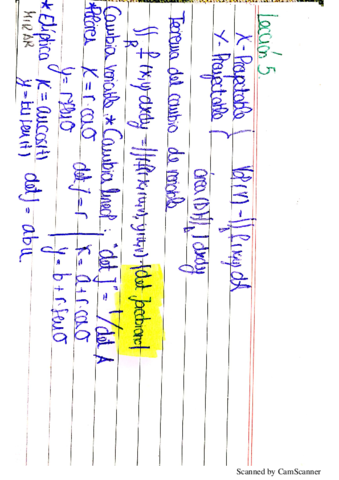 Lección 5
X- Proyectable { Vol(V) = ∬ f(x,y) dA
Y- Proyectable { área(D) = ∬ 1 dxdy
Teorema del cambio de variable
∬_R f(x,y) dxdy = ∬ f(x(u,v), y(u,v)) · |det jacobiano|
Cambio variable * Cambio lineal: "det J" = 1/det A
*Polares x = r·cosθ det J = r | x = a + r·cosθ
y = r·senθ | y = b + r·senθ
*Elíptica x = au cos(t) det J = abu
MIRAR y = bu sen(t)
Scanned by CamScanner